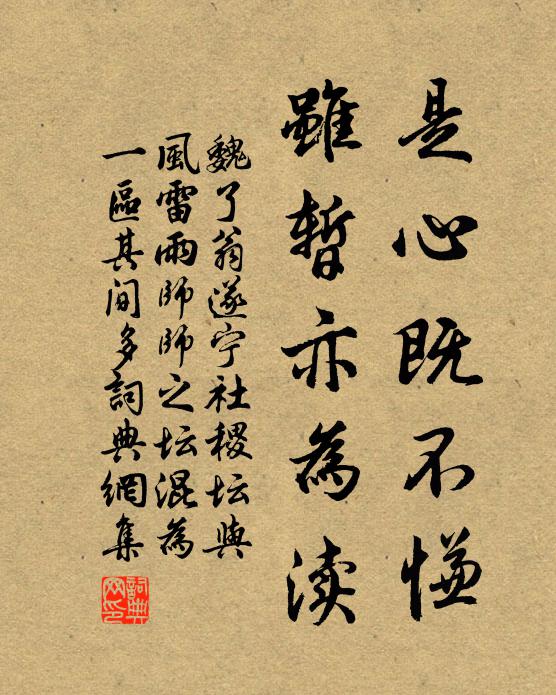 是心既不慊
雖暫亦為渎
魏了翁遂宁社稷坛與
風雷雨師師之坛混為
一區其间多詞典網集
詞典网印